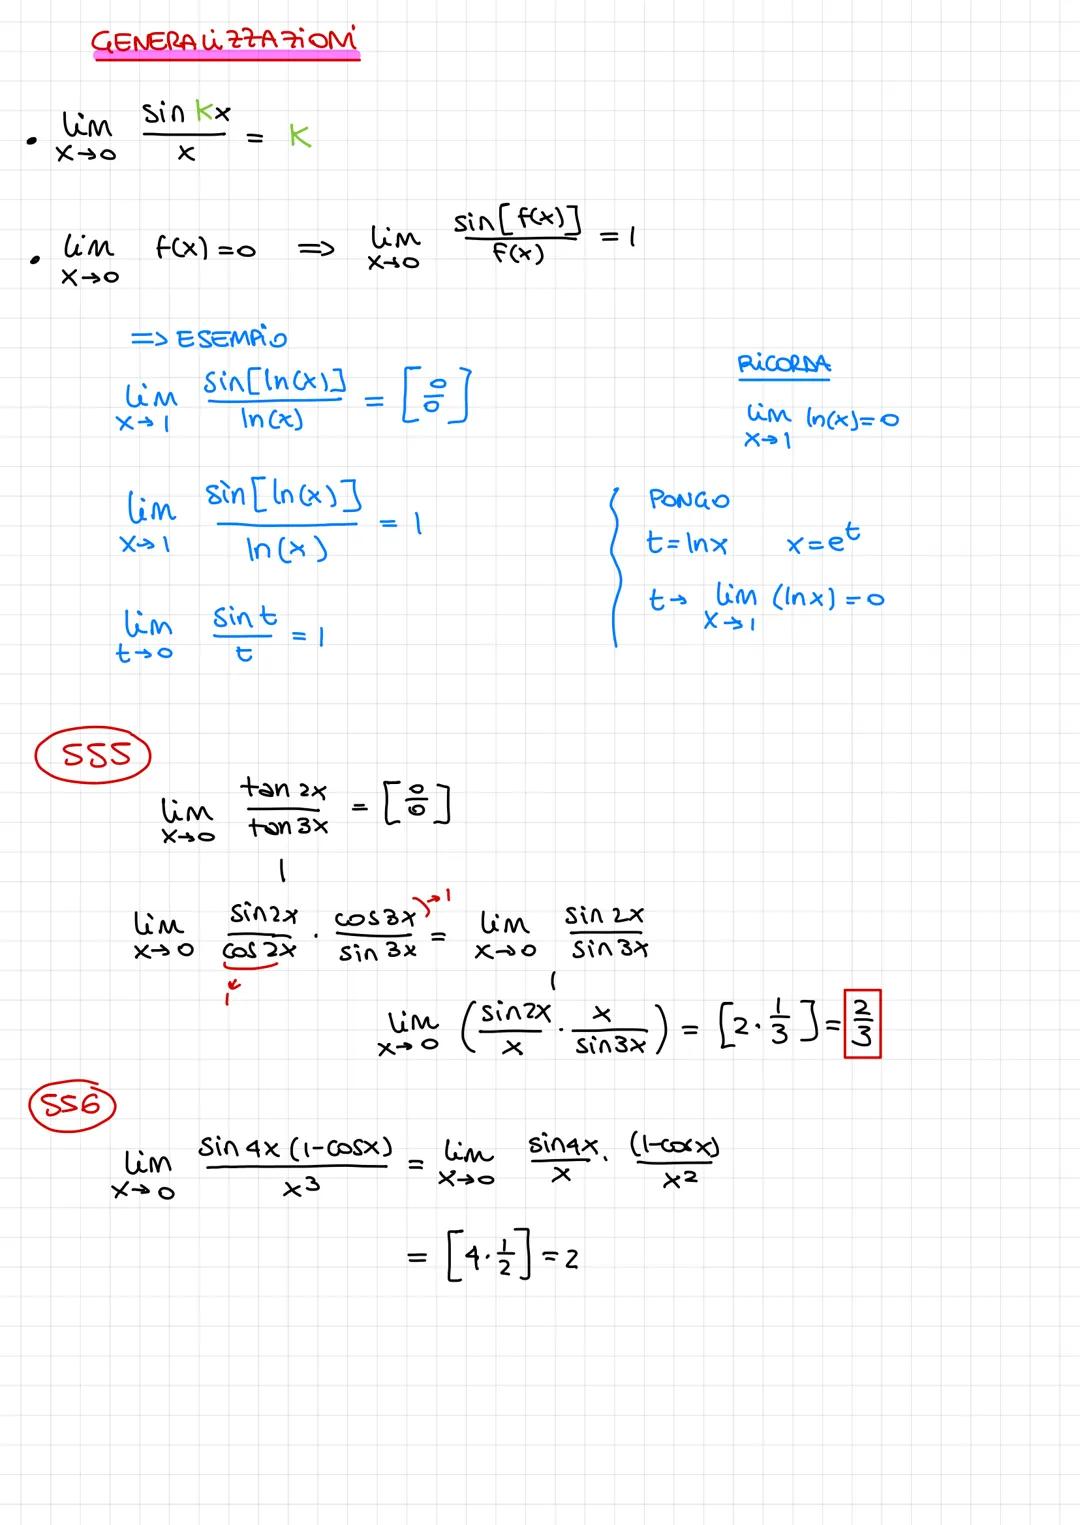 GENERALIZZAZIONI
• lim x→0 sin kx / x = K
• lim x→0 f(x) = 0 => lim x→0 sin[f(x)] / f(x) = 1
=> ESEMPIO
lim x→1 sin[ln(x)] / ln(x) = [0/0]
RICORDA
lim x→1 ln(x) = 0
lim x→1 sin[ln(x)] / ln(x) = 1
PONGO
t = lnx x = e^t
t → lim x→1 (lnx) = 0
lim t→0 sin t / t = 1
555
lim x→0 tan 2x / tan 3x = [0/0]
lim x→0 sin2x / cos 2x · cos3x / sin 3x = lim x→0 sin 2x / sin 3x
→1
1
lim x→0 (sin2x / x · x / sin3x) = [2 · 1/3] = 2/3
556
lim x→0 sin 4x (1-cosx) / x^3 = lim x→0 sin4x / x · (1-cosx) / x^2
= [4 · 1/2] = 2